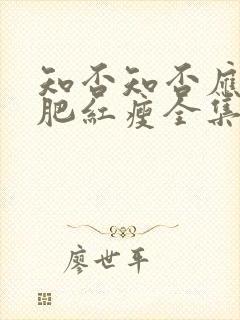 知否知否應
肥紅瘦全集
廖世平